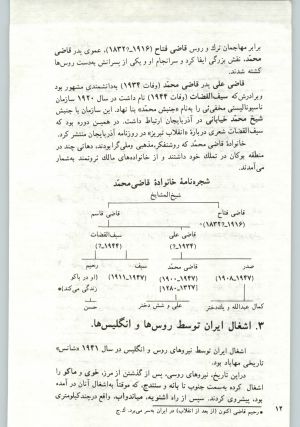 برابر مهاجمان ترك و روس قاضی فتاح (۱۹۱۶_۱۸۳۲؟)، عموی پدر قاضی
محمد، نقش بزرگی ایفا کرد و سرانجام او و یکی از پسرانش بەدست روس‌ها
کشته شدند.
قاضی علی پدر قاضی محمّد (وفات ۱۹۳۴) بەدانشمندی مشهور بود
و برادرش‌که سیف‌القضات (وفات ۱۹۴۴) نام داشت در سال ۱۹۲۰ سازمان
ناسیونالیستی مخفی‌ئی را بەنام «جنبش محمّد» بنا نهاد. این سازمان با جنبش
شیخ محمّد خیابانی در آذربایجان ارتباط داشت. در همین دوره بود که
سیف‌القضات شعری دربارهٔ «انقلاب تبریز» در روزنامه آذربایجان منتشر کرد.
خانوادهٔ قاضی محمّد که روشنفکر،مذهبی وملی‌گرابودند، دهاتی چند در
منطقه بوکان در تملك خود داشتند و از خانواده‌های مالك ثروتمند به‌شمار
می‌آمدند.
شجره‌نامهٔ خانوادهٔ قاضی‌محمّد
شیخ‌المشایخ
قاضی فتاح
(۱۹۱۶_۱۸۳۲؟)
قاضی قاسم
قاضی علی
(۱۹۳۴_؟)
سیف‌القضات
(۱۹۴۴_؟)
صدر
(۱۹۴۷_۱۹۰۸)
قاضی محمّد
(۱۹۴۷_۱۹۰۰)
سیف
(۱۹۴۷_۱۹۱۱)
رحیم
(او در باکو
زندگی می‌کند)*
کمال عبدالله و یك‌دختر
علی و شش دختر
حسن
۳. اشغال ایران توسط روس‌ها و انگلیس‌ها.
اشغال ایران توسط نیروهای روس و انگلیس در سال ۱۹۴۱ «شانس»
تاریخی مهاباد بود.
دراین تاریخ، نیروهای روسی، پس از گذشتن از مرز، خوی و ماکو را
اشغال کرده به‌سمت جنوب تا بانه و سنندج، که موقتاً به‌اشغال آنان در آمده
بود، پیشروی کردند. سپس از راه اشنویه، میاندواب، واقع درچندکیلومتری
*رحیم قاضی اکنون (از بعد از انقلاب) در ایران به‌سر می‌برد. ك.ج
۱۲